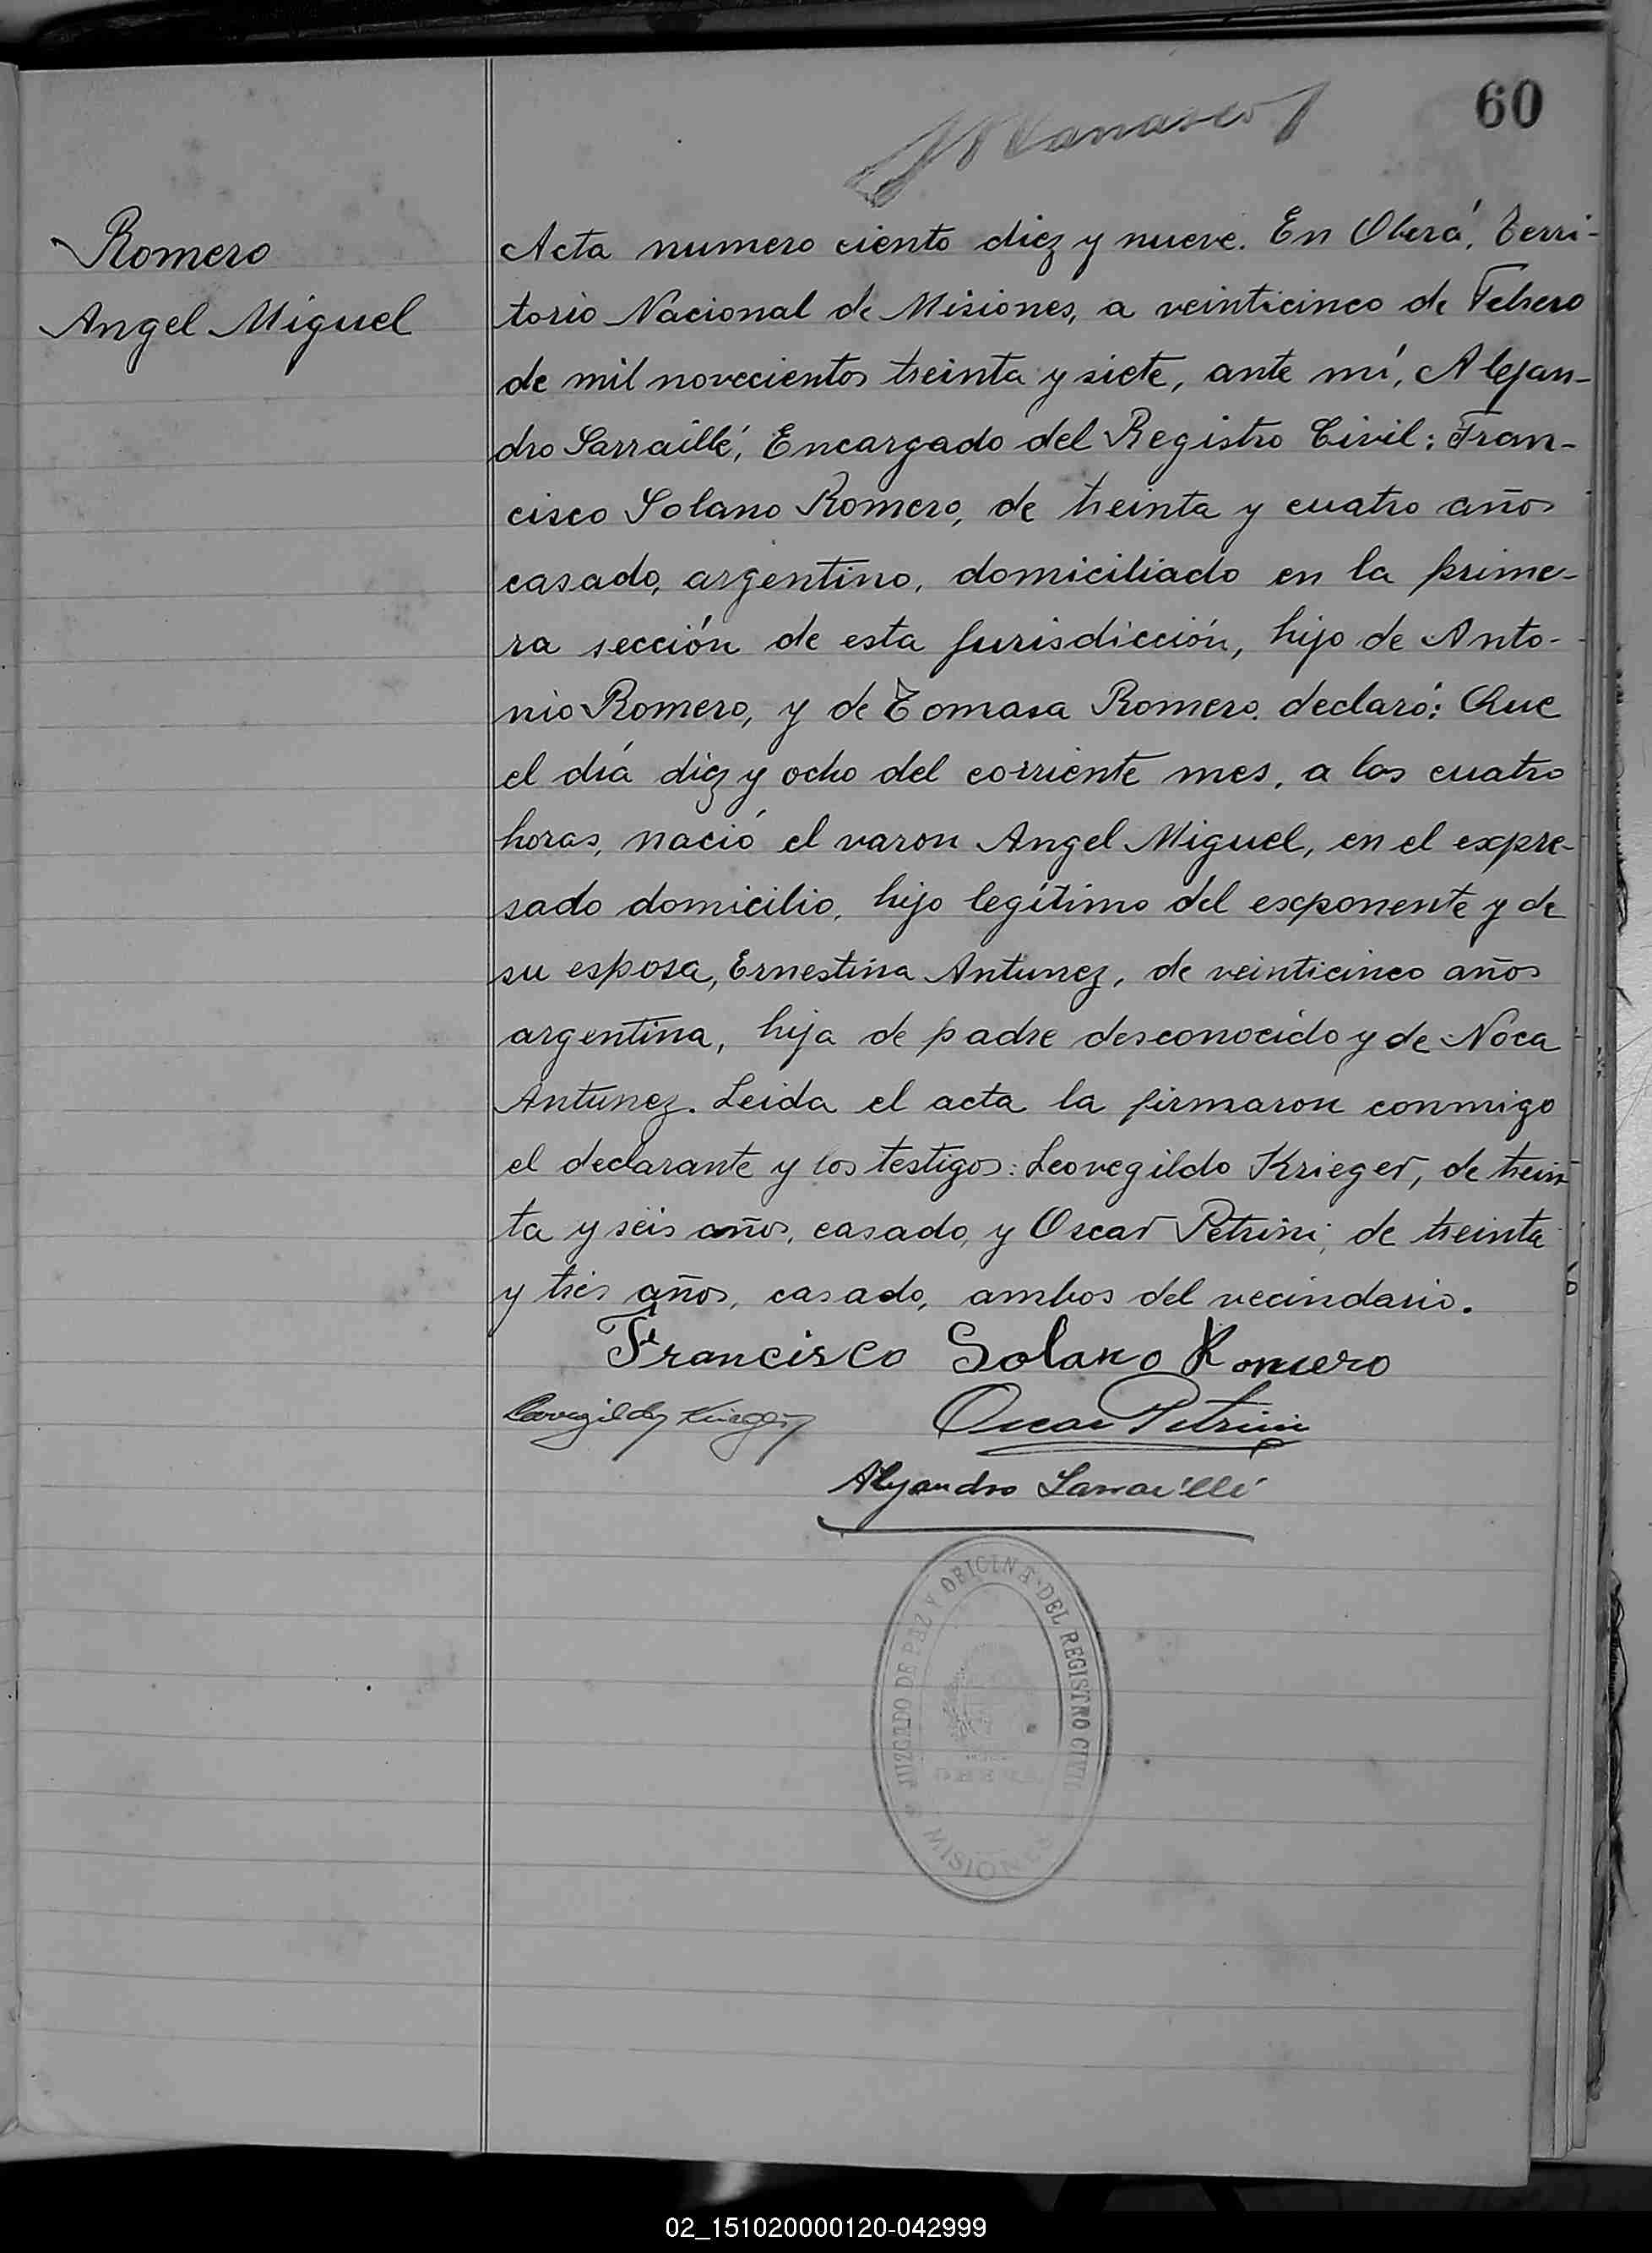 60
Romero
Angel Miguel
Acta numero ciento diez y nueve. En Oberá, Terri-
torio Nacional de Misiones, a veinticinco de Febrero
de mil novecientos treinta y siete, ante mí, Alejan-
dro Sarraillé, Encargado del Registro Civil: Fran-
cisco Solano Romero, de treinta y cuatro años
casado, argentino, domiciliado en la prime-
ra sección de esta jurisdicción, hijo de Anto-
nio Romero, y de Tomasa Romero. declaró: Que
el día diez y ocho del corriente mes, a las cuatro
horas, nació el varon Angel Miguel, en el expre-
sado domicilio, hijo legítimo del exponente y de
su esposa, Ernestina Antunez, de veinticinco años
argentina, hija de padre desconocido y de Noca
Antunez. Leida el acta la firmaron conmigo
el declarante y los testigos: Leovegildo Krieger, de trein
ta y seis años, casado, y Oscar Petrini, de treinta
y tres años, casado, ambos del vecindario.
Francisco Solano Romero
Leovegildo Krieger
Oscar Petrini
Alejandro Sarraillé
JUZGADO DE PAZ Y OFICINA DEL REGISTRO CIVIL
MISIONES
02_151020000120-042999